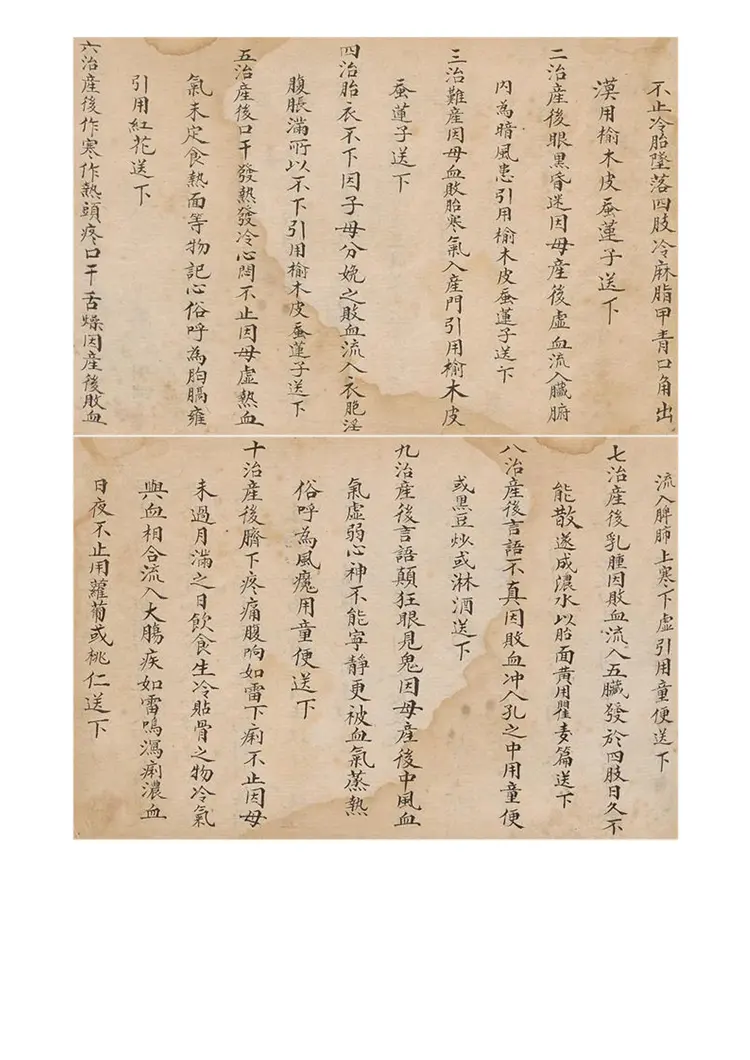 不止冷胎墜落四肢冷麻脂甲青口角出
漠用榆木皮蚕蓮子送下
二治產後眼黑昏迷因母產後虛血流入臟腑
內為暗風患引用榆木皮蚕蓮子送下
三治難產因母血敗胎寒氣入產門引用榆木皮
蚕蓮子送下
四治胎衣不下因子母分娩之敗血流入衣胞淫
腹脹滿所以不下引用榆木皮蚕蓮子送下
五治產後口干發熱發冷心悶不止因母虛熱血
氣未定食熱面等物記心俗呼為胸膈雍
引用紅花送下
六治產後作寒作熱頭疼口干舌燥因產後敗血
流入脾肺上寒下虛引用童便送下
七治產後乳腫因敗血流入五臟發於四肢日久不
能散遂成濃水以胎面黃用瞿麦篇送下
八治產後言語不真因敗血冲入孔之中用童便
或黑豆炒或淋酒送下
九治產後言語顛狂眼見鬼因母產後中風血
氣虛弱心神不能寧靜更被血氣蒸熱
俗呼為風魔用童便送下
十治產後臍下疼痛腹响如雷下痢不止因母
未過月滿之日飲食生冷貼骨之物冷氣
與血相合流入大腸疾如雷鳴瀉痢濃血
日夜不止用蘿蔔或桃仁送下